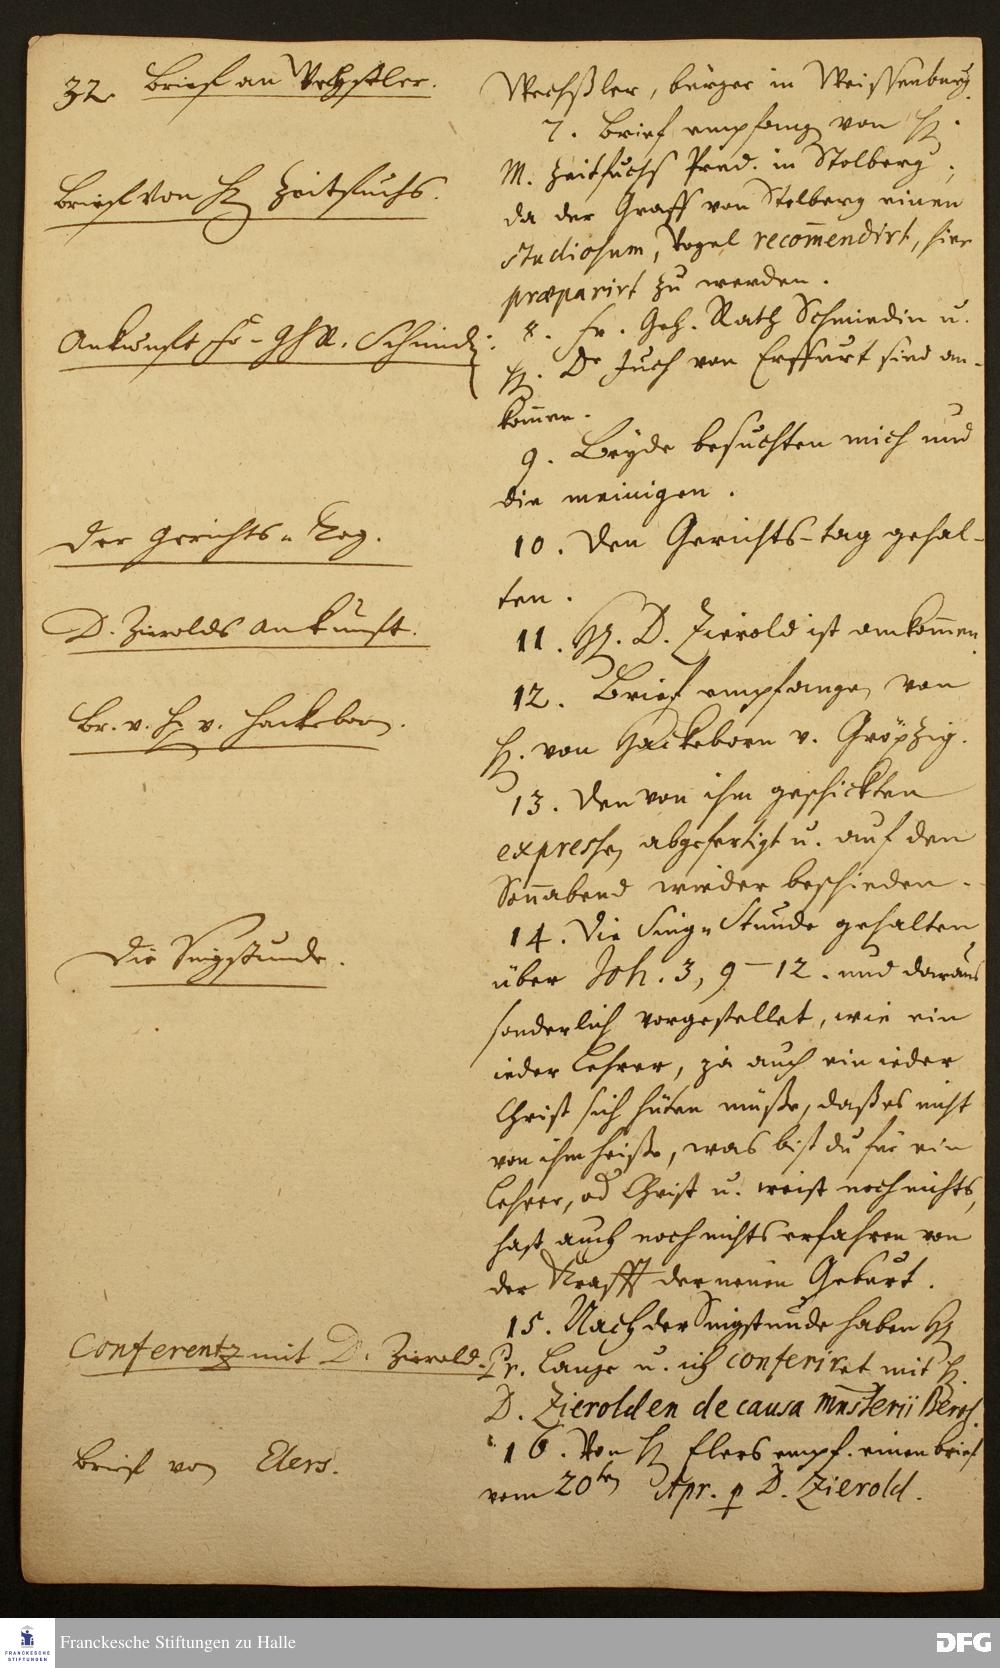 32. Brief an Wechsler.
Brief von H. Zeitfuchs.
Ankunfft Fr. GhR. Schmid:
Der Gerichts-Tag.
D. Zierolds Ankunfft.
Br. v. H. v. Hackeborn.
Die Singstunde.
Conferentz mit D. Zierold.
Brief von Elers.
Wechßler, bürger in Weissenburg.
7. Brief empfang von H.
M. Zeitfuchs Pred. in Stolberg;
da der Graff von Stolberg einen
studiosum, Vogel recom̄endirt, hier
præparirt zu werden.
8. Fr. Geh. Rath Schmiedin u.
H. Dr Juch von Erffurt sind an-
kom̄en.
9. Beyde besuchten mich und
die meinigen.
10. Den Gerichts-tag gehal-
ten.
11. H. D. Zierold ist ankom̄en.
12. Brief empfangen von
H. von Hackeborn v. Gröpzig.
13. Den von ihm geschickten
expressen abgefertigt u. auf den
Son̄abend wieder beschieden.
14. Die Sing-Stunde gehalten
über Joh. 3, 9-12. und daraus
sonderlich vorgestellet, wie ein
ieder Lehrer, ja auch ein ieder
Christ sich hüten müße, daß es nicht
von ihm heiße, was bist du für ein
Lehrer, od Christ u. weist noch nichts,
hast auch noch nichts erfahren von
der Krafft der neuen Geburt.
15. Nach der Singstunde haben H
Pr. Lange u. ich conferiret mit H.
D. Zierolden de causa mnsterii Berol.
16. Von H Elers empf. einen brief
vom 20ten Apr. p D. Zierold.
Franckesche Stiftungen zu Halle
FRANCKESCHE
STIFTUNGEN
DFG